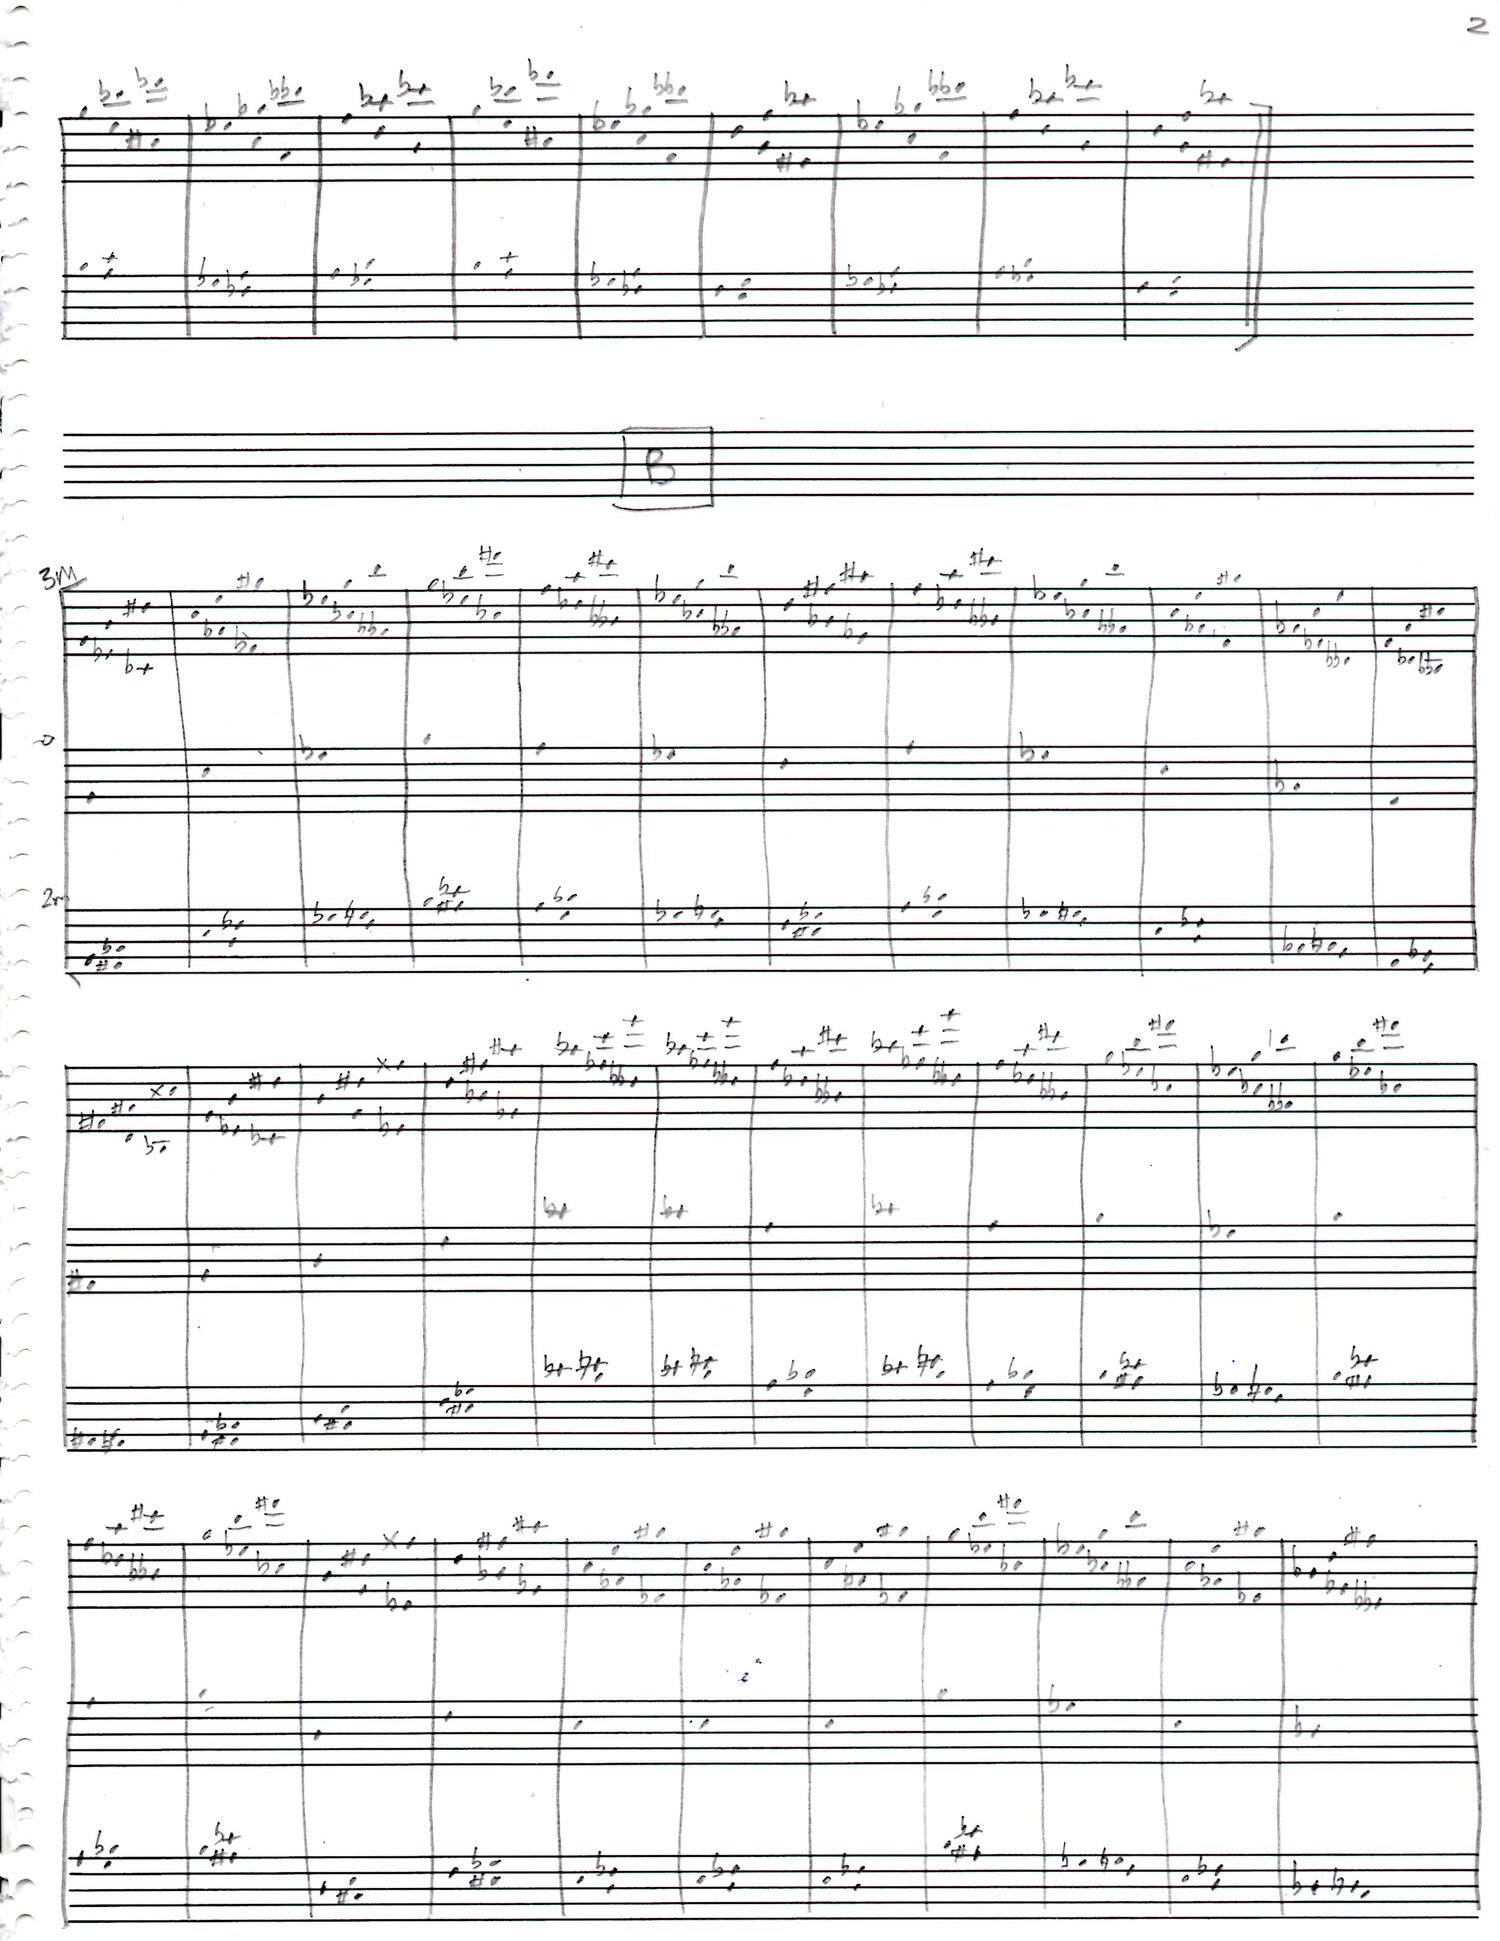 2
B
3M
0
2m